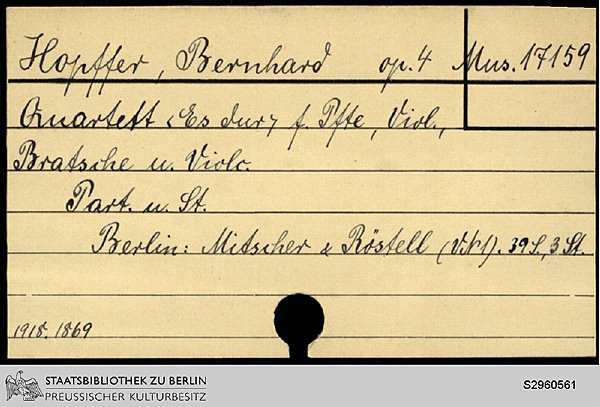 Hopffer, Bernhard op. 4 Mus. 17159
Quartett <Es dur> f. Pfte, Viol.,
Bratsche u. Violc.
Part. u. St.
Berlin: Mitscher & Röstell (VN 1). 39 S., 3 St.
1918. 1869
STAATSBIBLIOTHEK ZU BERLIN
PREUSSISCHER KULTURBESITZ
S2960561